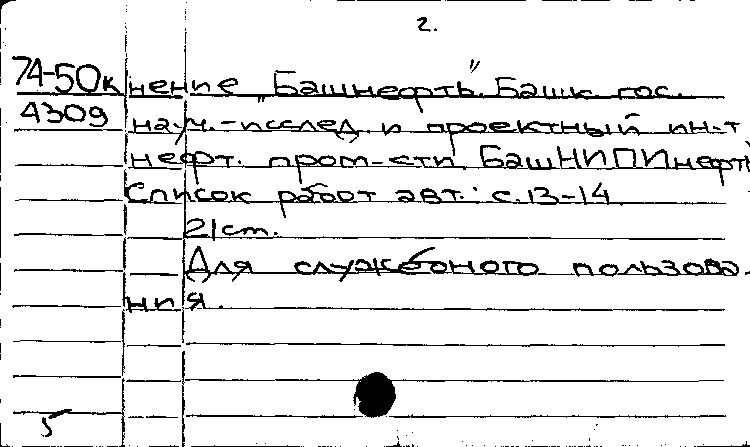 2.
74-50к нение „Башнефть". Башк. гос.
4309 науч.-исслед. и проектный ин-т
нефт. пром-сти. БашНИПИнефть
Список работ авт.: с.13-14.
21 cm.
Для служебного пользова-
ния.
5